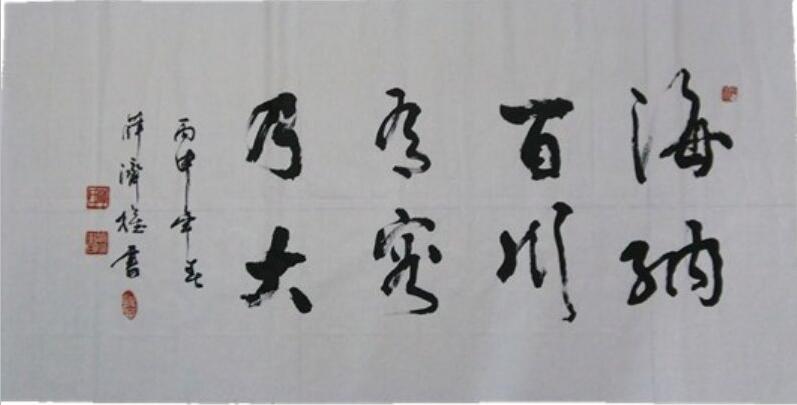 海纳
百川
有容
乃大
丙申年春
薛济檀书